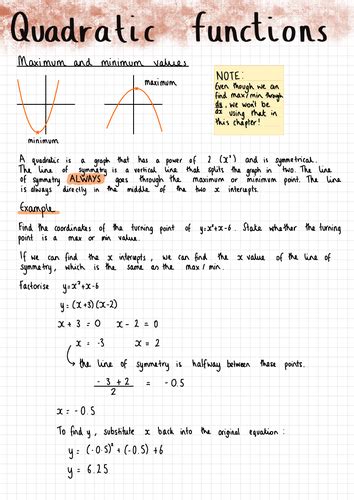 Quadratic functions
Maximum and minimum values
maximum
minimum
NOTE:
Even though we can
find max/min through
dy/dx, we won't be
using that in
this chapter!
A quadratic is a graph that has a power of 2 (x²) and is symmetrical.
The line of symmetry is a vertical line that splits the graph in two. The line
of symmetry ALWAYS goes through the maximum or minimum point. The line
is always directly in the middle of the two x intercepts.
Example
Find the coordinates of the turning point of y=x²+x-6. State whether the turning
point is a max or min value.
If we can find the x intercepts, we can find the x value of the line of
symmetry, which is the same as the max/min.
Factorise y=x²+x-6
y=(x+3)(x-2)
x+3=0 x-2=0
x = -3 x = 2
the line of symmetry is halfway between these points.
-3+2/2 = -0.5
x = -0.5
To find y, substitute x back into the original equation:
y = (-0.5)² + (-0.5) + 6
y = 6.25